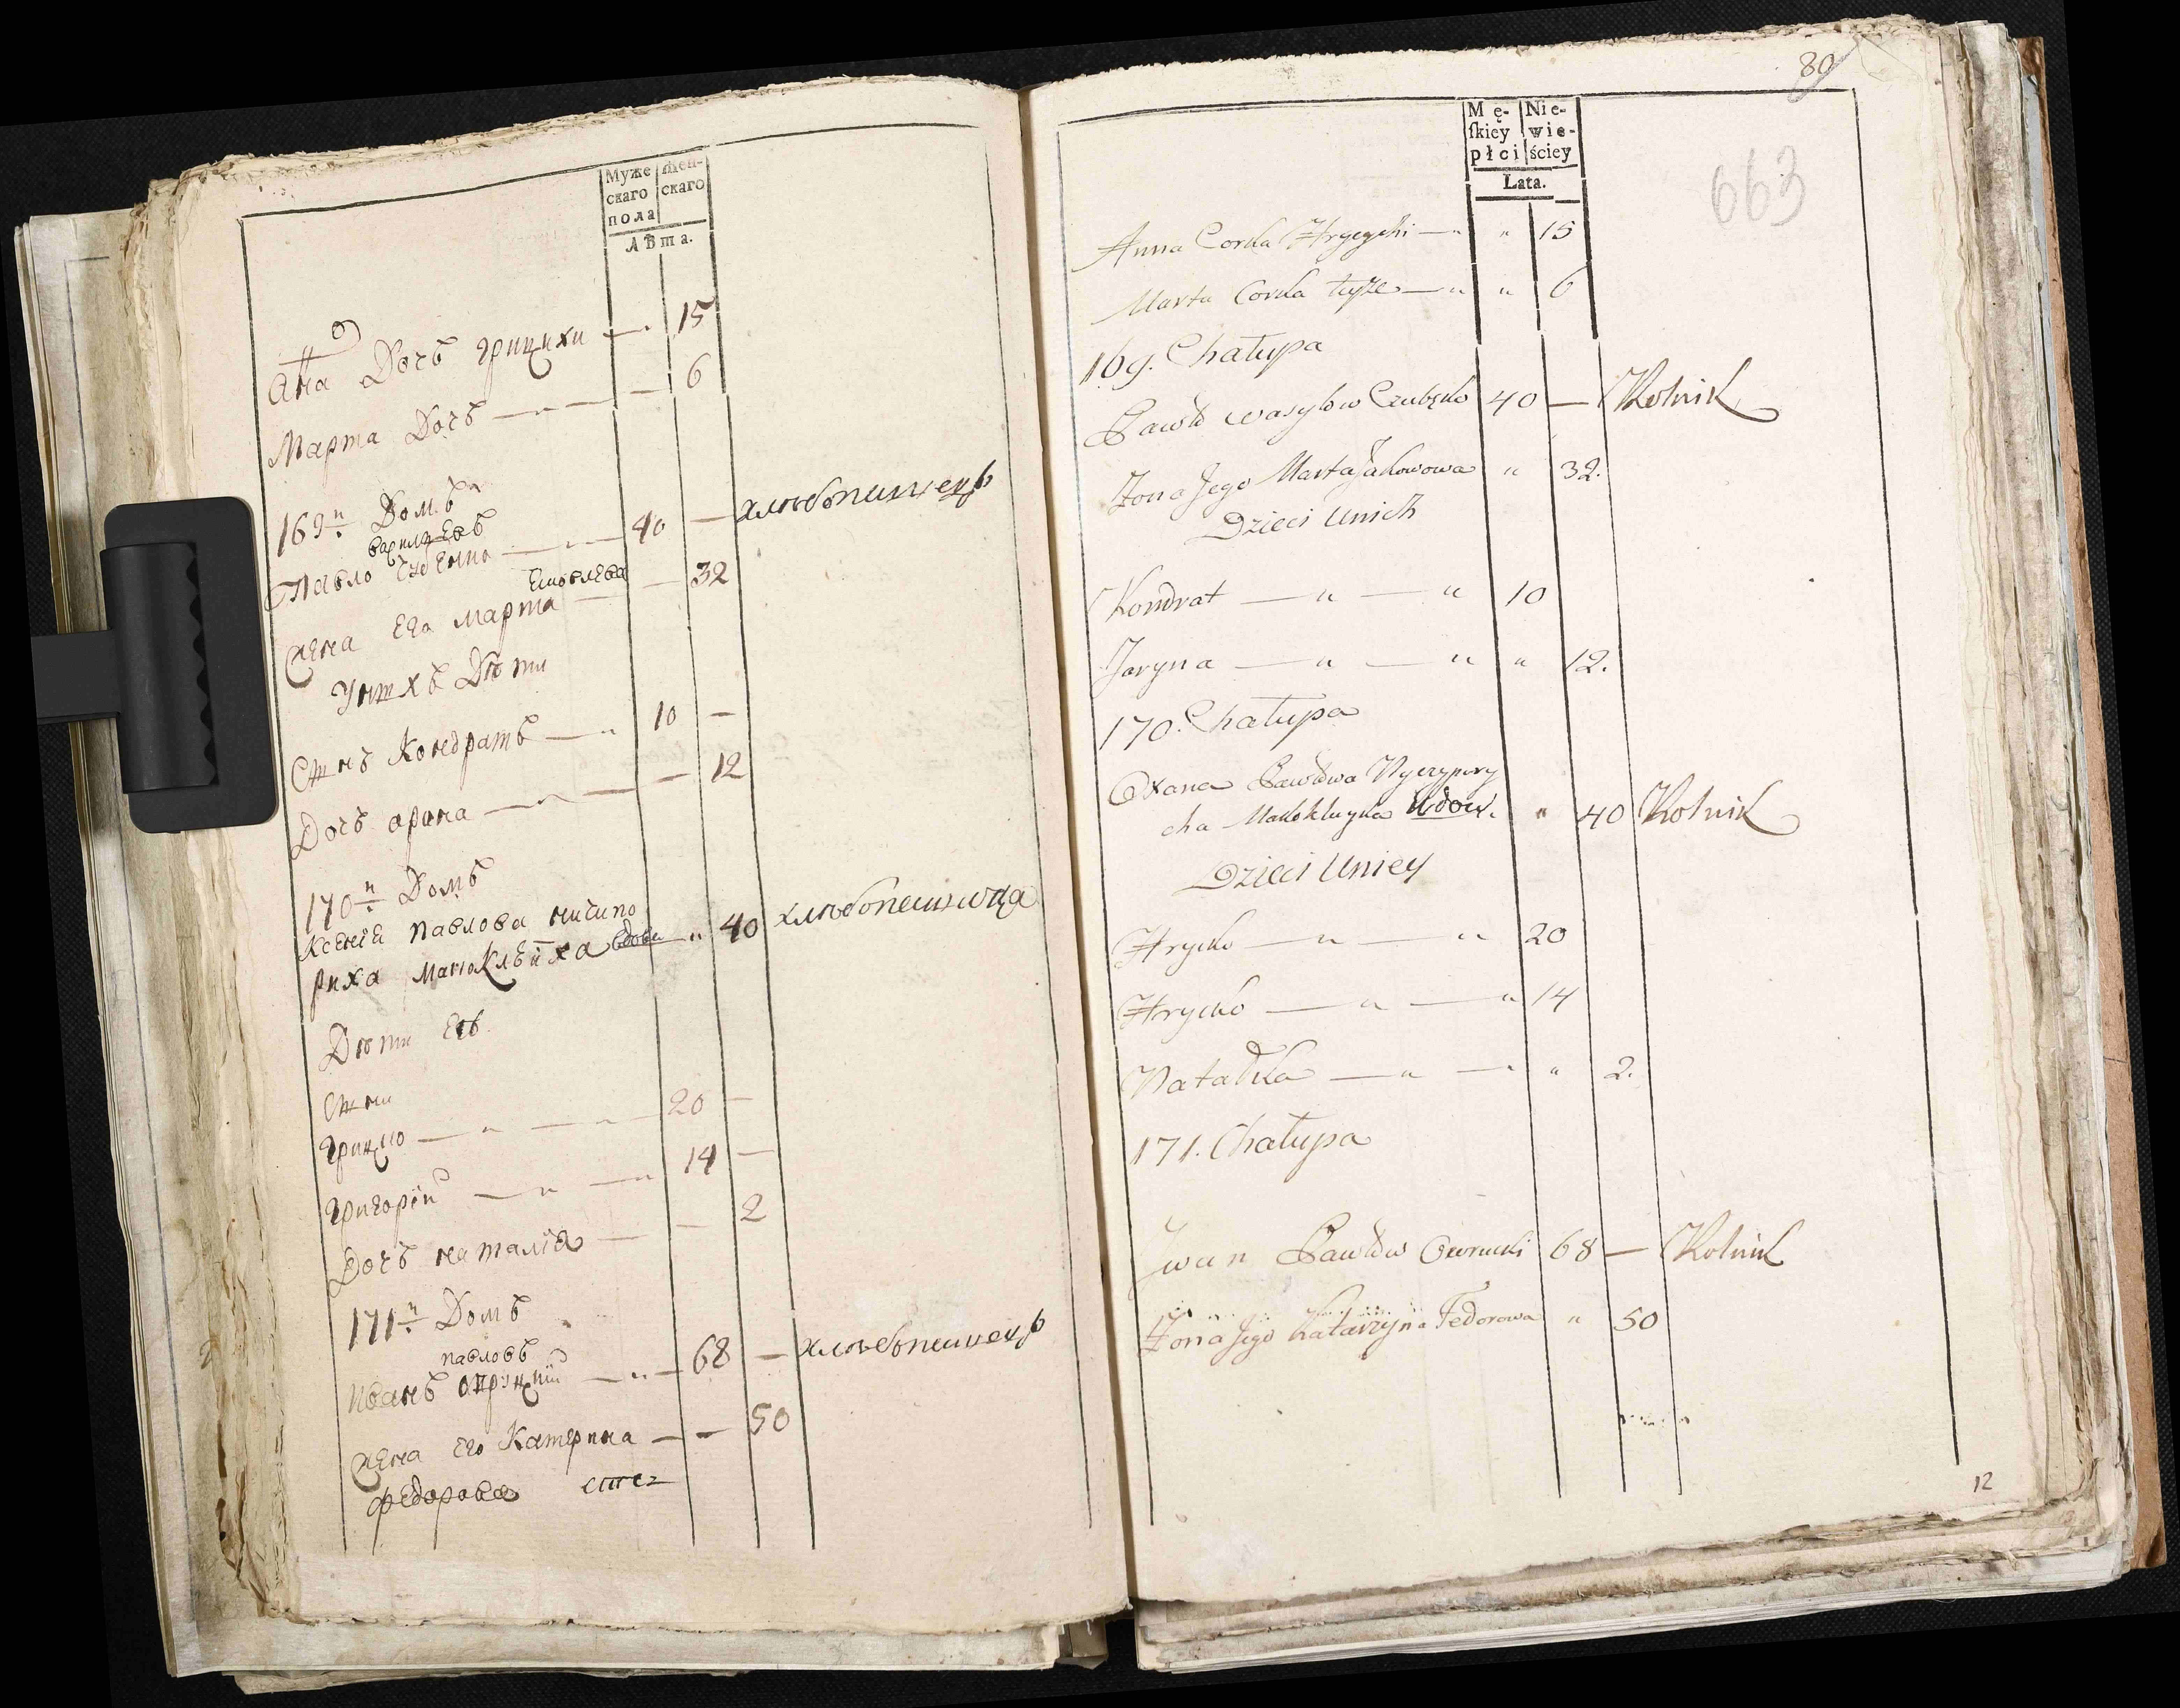 Муже скаго пола
Жен- скаго
Лѣта.
Анна Дочъ грицихи — 15
Марта Дочъ — „ — 6
169й Домъ
василевъ
Павло — „ — 40 — хлѣбопашецъ
Яковлева
жена Его марта — 32
Унихъ Дѣти
Синъ Кондратъ — „ 10 —
Дочъ арина — „ — 12
170й Домъ
Ксенія павлова ничипо
риха маноклѣйха вдова „ 40 хлѣбопашица
Дѣти Еѣ
Сини
Грицко — „ — „ — 20 —
Григорій — „ — „ 14 —
Дочъ наталія — — 2
171й Домъ
павловъ
Иванъ — „ — 68 — хлѣбопашецъ
жена Его Катерина — — 50
федорова
80
663
Mę- skiey płci
Nie- wie- ściey
Lata.
Anna Corka Hrycychi — „ „ 15
Marta Corka tyże — „ „ 6
169. Chałupa
Pawło Wasylow Czubenko 40 — Rolnik
Żona Jego Marta Jakowowa „ 32.
Dzieci Unich
Kondrat — „ — „ 10
Jaryna — „ — „ „ 12.
170. Chałupa
Oxana Pawłowa Nyczypory
cha Manokleycha Wdowa „ 40 Rolnik
Dzieci Uniey
Hrycko — „ — „ 20
Hrycko — „ — „ 14
Natałka — „ — „ „ 2.
171. Chałupa
Jwan Pawłow Owrucki 68 — Rolnik
Żona Jego Katarzyna Fedorowa „ 50
12